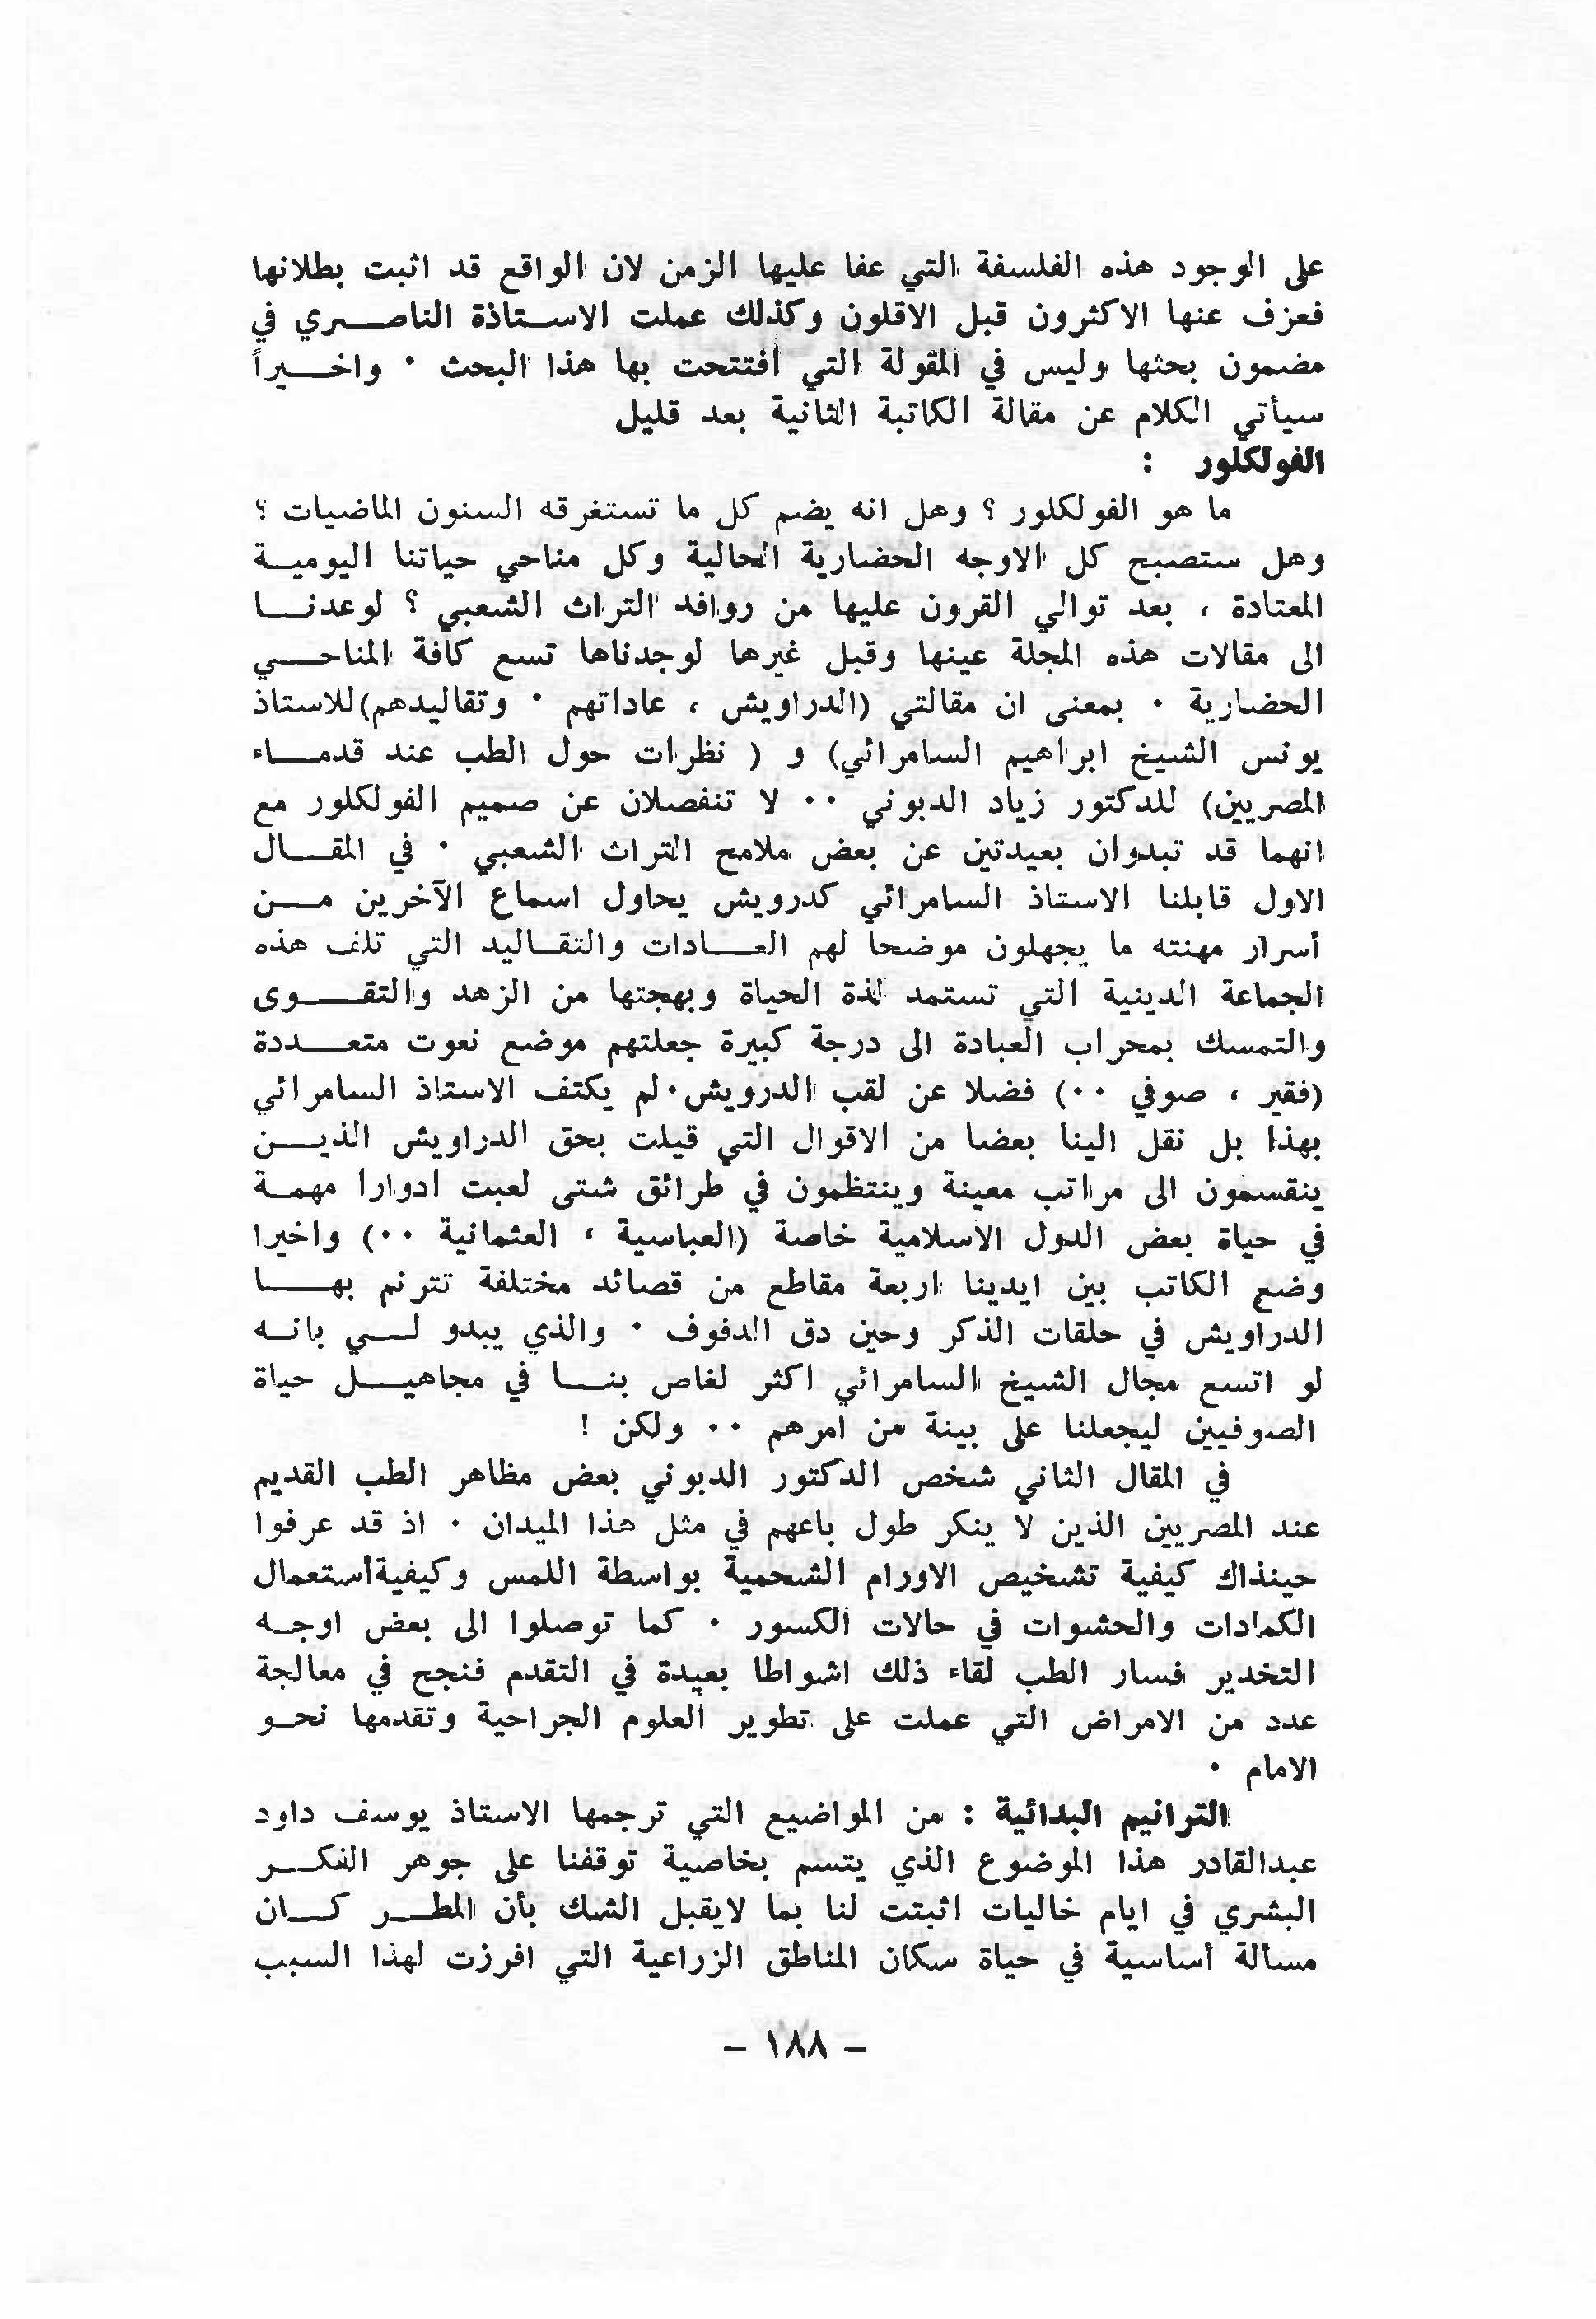 على الوجود هذه الفلسفة التي عفا عليها الزمن لان الواقع قد اثبت بطلانها
فعزف عنها الاكثرون قبل الاقلون وكذلك عملت الاستاذة الناصري في
مضمون بحثها وليس في المقولة التي أفتتحت بها هذا البحث ٠ واخيراً
سيأتي الكلام عن مقالة الكاتبة الثانية بعد قليل
الفولكلور :
ما هو الفولكلور ؟ وهل انه يضم كل ما تستغرقه السنون الماضيات ؟
وهل ستصبح كل الاوجه الحضارية الحالية وكل مناحي حياتنا اليومية
المعتادة ، بعد توالي القرون عليها من روافد التراث الشعبي ؟ لوعدنا
الى مقالات هذه المجلة عينها وقبل غيرها لوجدناها تسع كافة المناحي
الحضارية ٠ بمعنى ان مقالتي (الدراويش ، عاداتهم ٠ وتقاليدهم)للاستاذ
يونس الشيخ ابراهيم السامرائي) و ( نظرات حول الطب عند قدماء
المصريين) للدكتور زياد الدبوني ٠٠ لا تنفصلان عن صميم الفولكلور مع
انهما قد تبدوان بعيدتين عن بعض ملامح التراث الشعبي ٠ في المقال
الاول قابلنا الاستاذ السامرائي كدرويش يحاول اسماع الآخرين من
أسرار مهنته ما يجهلون موضحا لهم العادات والتقاليد التي تلف هذه
الجماعة الدينية التي تستمد لذة الحياة وبهجتها من الزهد والتقوى
والتمسك بمحراب العبادة الى درجة كبيرة جعلتهم موضع نعوت متعددة
(فقير ، صوفي ٠٠) فضلا عن لقب الدرويش٠لم يكتف الاستاذ السامرائي
بهذا بل نقل الينا بعضا من الاقوال التي قيلت بحق الدراويش الذين
ينقسمون الى مراتب معينة وينتظمون في طرائق شتى لعبت ادوارا مهمة
في حياة بعض الدول الاسلامية خاصة (العباسية ، العثمانية ٠٠) واخيرا
وضع الكاتب بين ايدينا اربعة مقاطع من قصائد مختلفة تترنم بها
الدراويش في حلقات الذكر وحين دق الدفوف ٠ والذي يبدو لي بانه
لو اتسع مجال الشيخ السامرائي اكثر لغاص بنا في مجاهيل حياة
الصوفيين ليجعلنا على بينة من امرهم ٠٠ ولكن !
في المقال الثاني شخص الدكتور الدبوني بعض مظاهر الطب القديم
عند المصريين الذين لا ينكر طول باعهم في مثل هذا الميدان ٠ اذ قد عرفوا
حينذاك كيفية تشخيص الاورام الشحمية بواسطة اللمس وكيفيةأستعمال
الكمادات والحشوات في حالات الكسور ٠ كما توصلوا الى بعض اوجه
التخدير فسار الطب لقاء ذلك اشواطا بعيدة في التقدم فنجح في معالجة
عدد من الامراض التي عملت على تطوير العلوم الجراحية وتقدمها نحو
الامام ٠
الترانيم البدائية : من المواضيع التي ترجمها الاستاذ يوسف داود
عبدالقادر هذا الموضوع الذي يتسم بخاصية توقفنا على جوهر الفكر
البشري في ايام خاليات اثبتت لنا بما لايقبل الشك بأن المطر كان
مسألة أساسية في حياة سكان المناطق الزراعية التي افرزت لهذا السبب
- ١٨٨ -